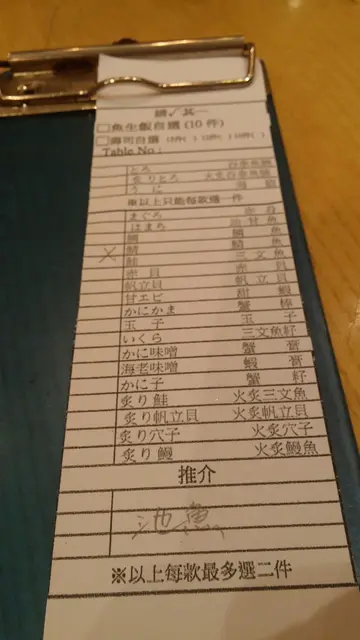 請✓其一
□魚生飯自選(10 件)
□壽司自選
Table No:
とろ
炙りとろ 火炙吞拿魚腩
うに 海膽
※以上只能每款選一件
まぐろ 赤身
はまち 油甘魚
鯛 鯛魚
鯖 鯖魚
鮭 三文魚
赤貝 赤貝
帆立貝 帆立貝
甘エビ 甜蝦
かにかま 蟹棒
玉子 玉子
いくら 三文魚籽
かに味噌 蟹膏
海老味噌 蝦膏
かに子 蟹籽
炙り鮭 火炙三文魚
炙り帆立貝 火炙帆立貝
炙り穴子 火炙穴子
炙り鰻 火炙鰻魚
推介
池魚
※以上每款最多選二件